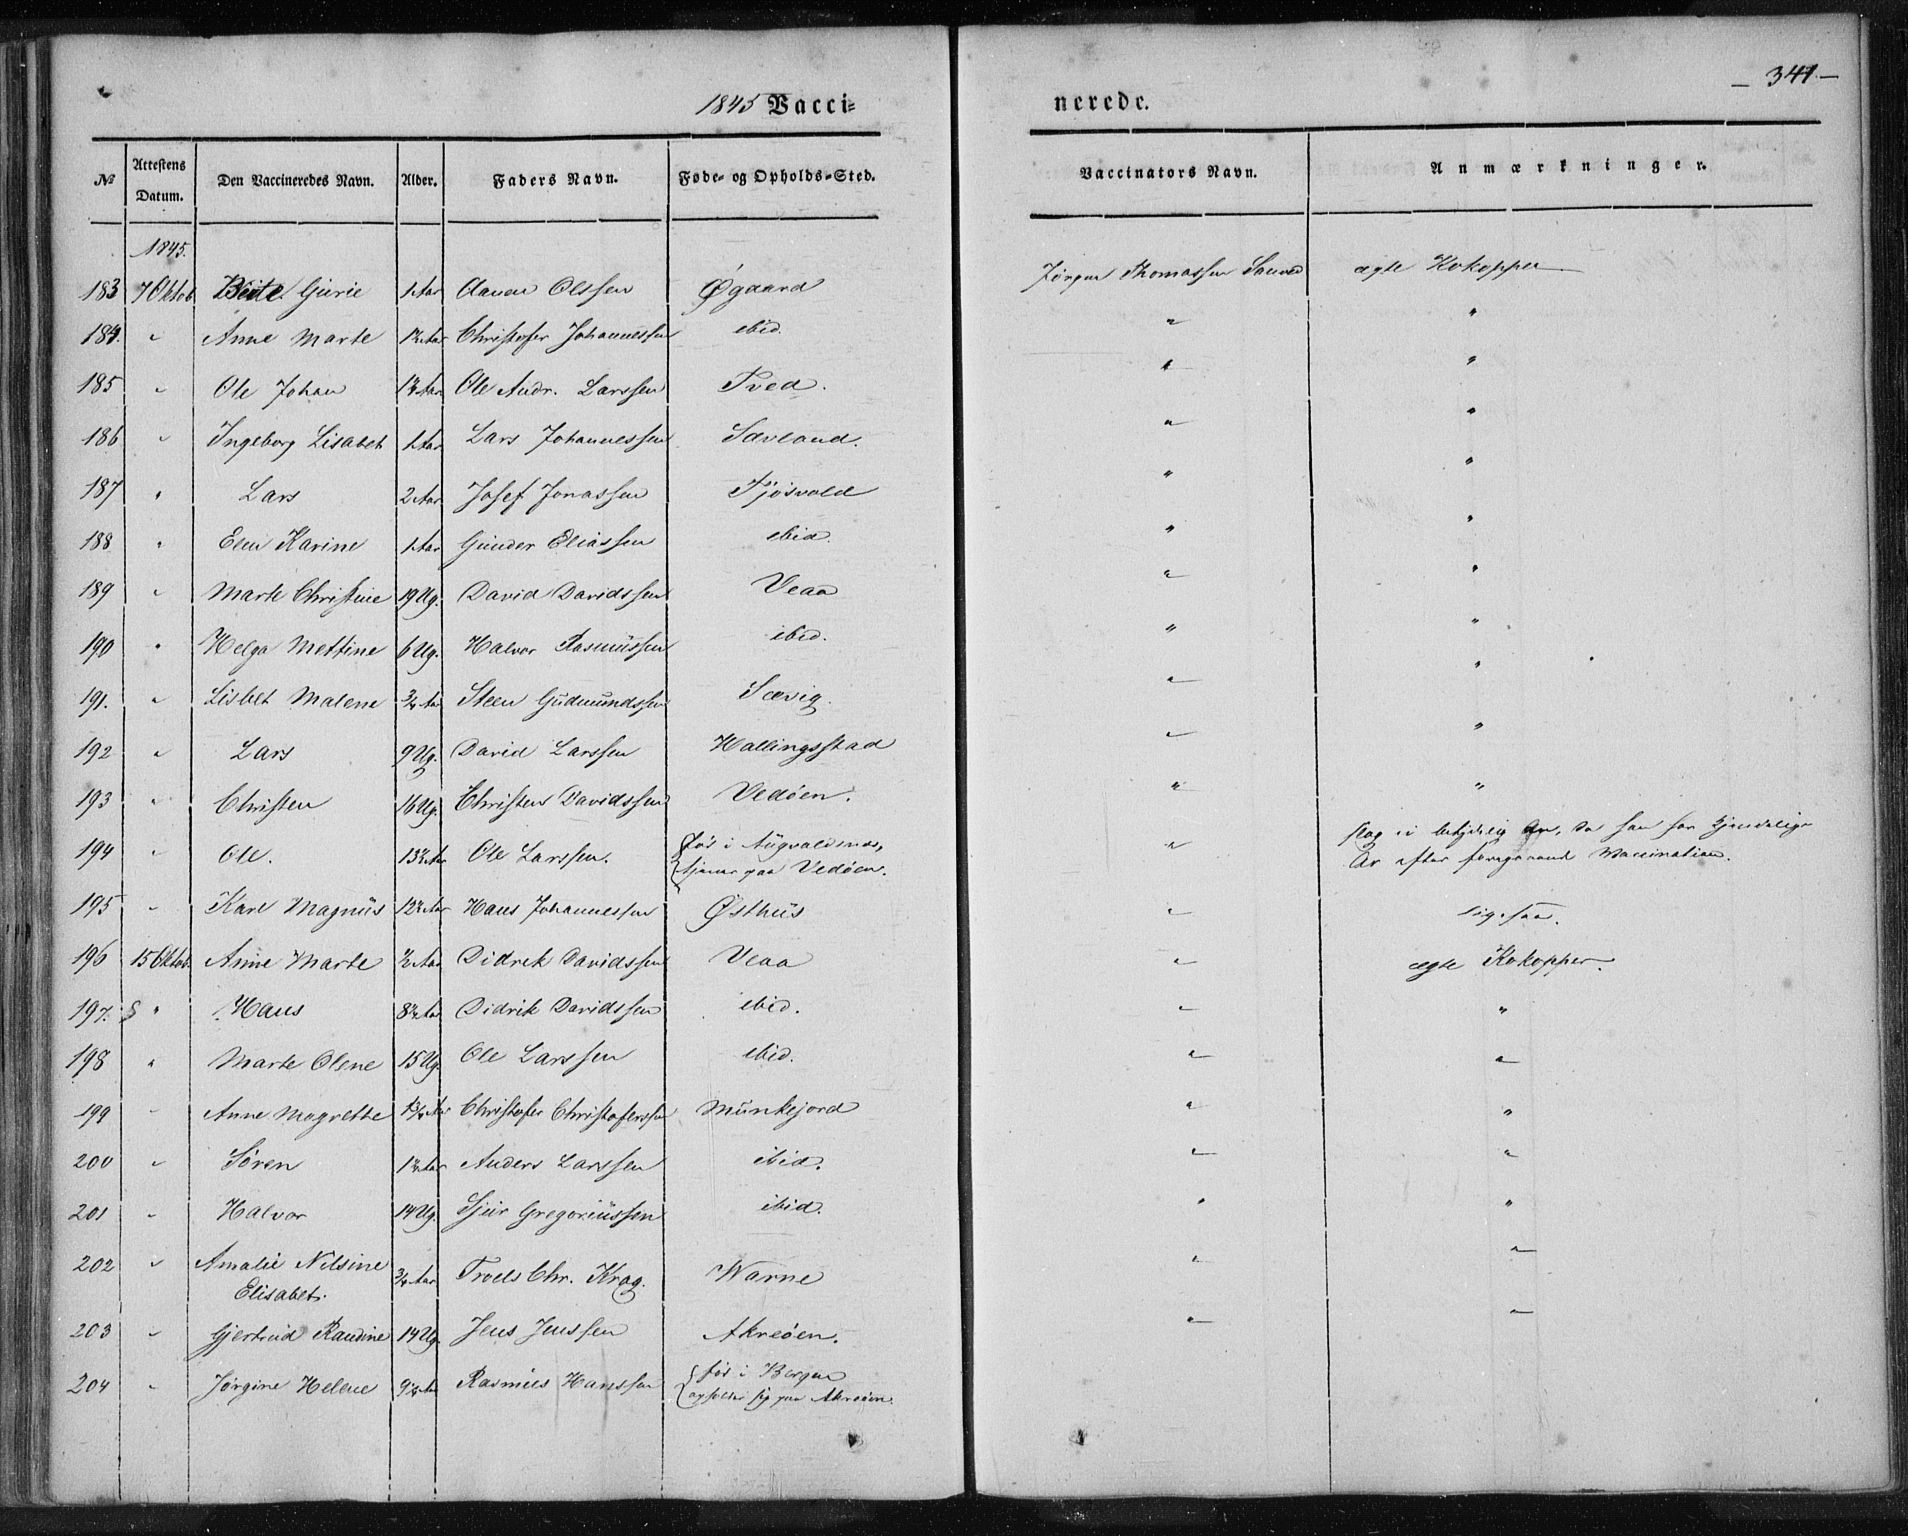 341
1845 Vacci= nerede.
№ | Attestens Datum. | Den Vaccineredes Navn. | Alder. | Faders Navn. | Føde- og Opholds-Sted. | Vaccinators Navn. | Anmærkninger.
1845.
183 | 7 Oktob | Beite Gurie | 1 Aar | Aanen Olssen | Øgaard | Jørgen Thomassen | ægte Kokopper
184. | " | Anne Marte | 1½ Aar | Christofer Johannessen | ibid. | " | "
185 | " | Ole Johan | 1½ Aar | Ole Andr. Larssen | Tved. | " | "
186 | " | Ingeborg Lisabet | 1 Aar | Lars Johannessen | Sævland. | " | "
187 | " | Lars | 2 Aar | Josef Jonassen | Tjøsvold | " | "
188 | " | Elen Karine | 1 Aar | Gunder Eliassen | ibid. | " | "
189 | " | Marte Christine | 19 Ug. | David Davidssen | Veaa | " | "
190 | " | Helga Mettine | 6 Ug. | Halvor Rasmussen | ibid. | " | "
191. | " | Lisbet Malene | ¾ Aar | Steen Gudmundssen | Sævig. | " | "
192 | " | Lars | 9 Ug. | David Larssen | Hallingsstad | " | "
193 | " | Christen | 16 Ug. | Christen Davidssen | Vedøen. | " | "
194 | " | Ole. | 13½ Aar | Ole Larssen. | fød i Augvaldsnæs,
tjener paa Vedøen. | " | Ar efter foregaaende Vaccination.
195 | " | Karl Magnus | 12½ Aar | Hans Johannessen | Østhus | " | ligesaa.
196 | 15 Oktob. | Anne Marte | ½ Aar | Didrik Davidssen | Veaa | " | ægte Kokopper.
197. | " | Hans | 8½ Aar | Didrik Davidssen | ibid. | " | "
198 | " | Marte Olene | 15 Ug. | Ole Larssen | ibid. | " | "
199 | " | Anne Magrethe | 1¾ Aar | Christofer Christoferssen | Munkejord | " | "
200 | " | Søren | 1½ Aar | Anders Larssen | ibid. | " | "
201 | " | Halvor | 14 Ug. | Sjur Gregoriussen | ibid. | " | "
202 | " | Amalie Nilsine
Elisabet. | ¾ Aar | Troels Chr. Krog. | Warne | " | "
203 | " | Gjertrud Randine | 14 Ug. | Jens Jenssen | Akreøen. | " | "
204 | " | Jørgine Helene | 9½ Aar | Rasmus Hanssen | fød i Bergen
opholder sig paa Akreøen.